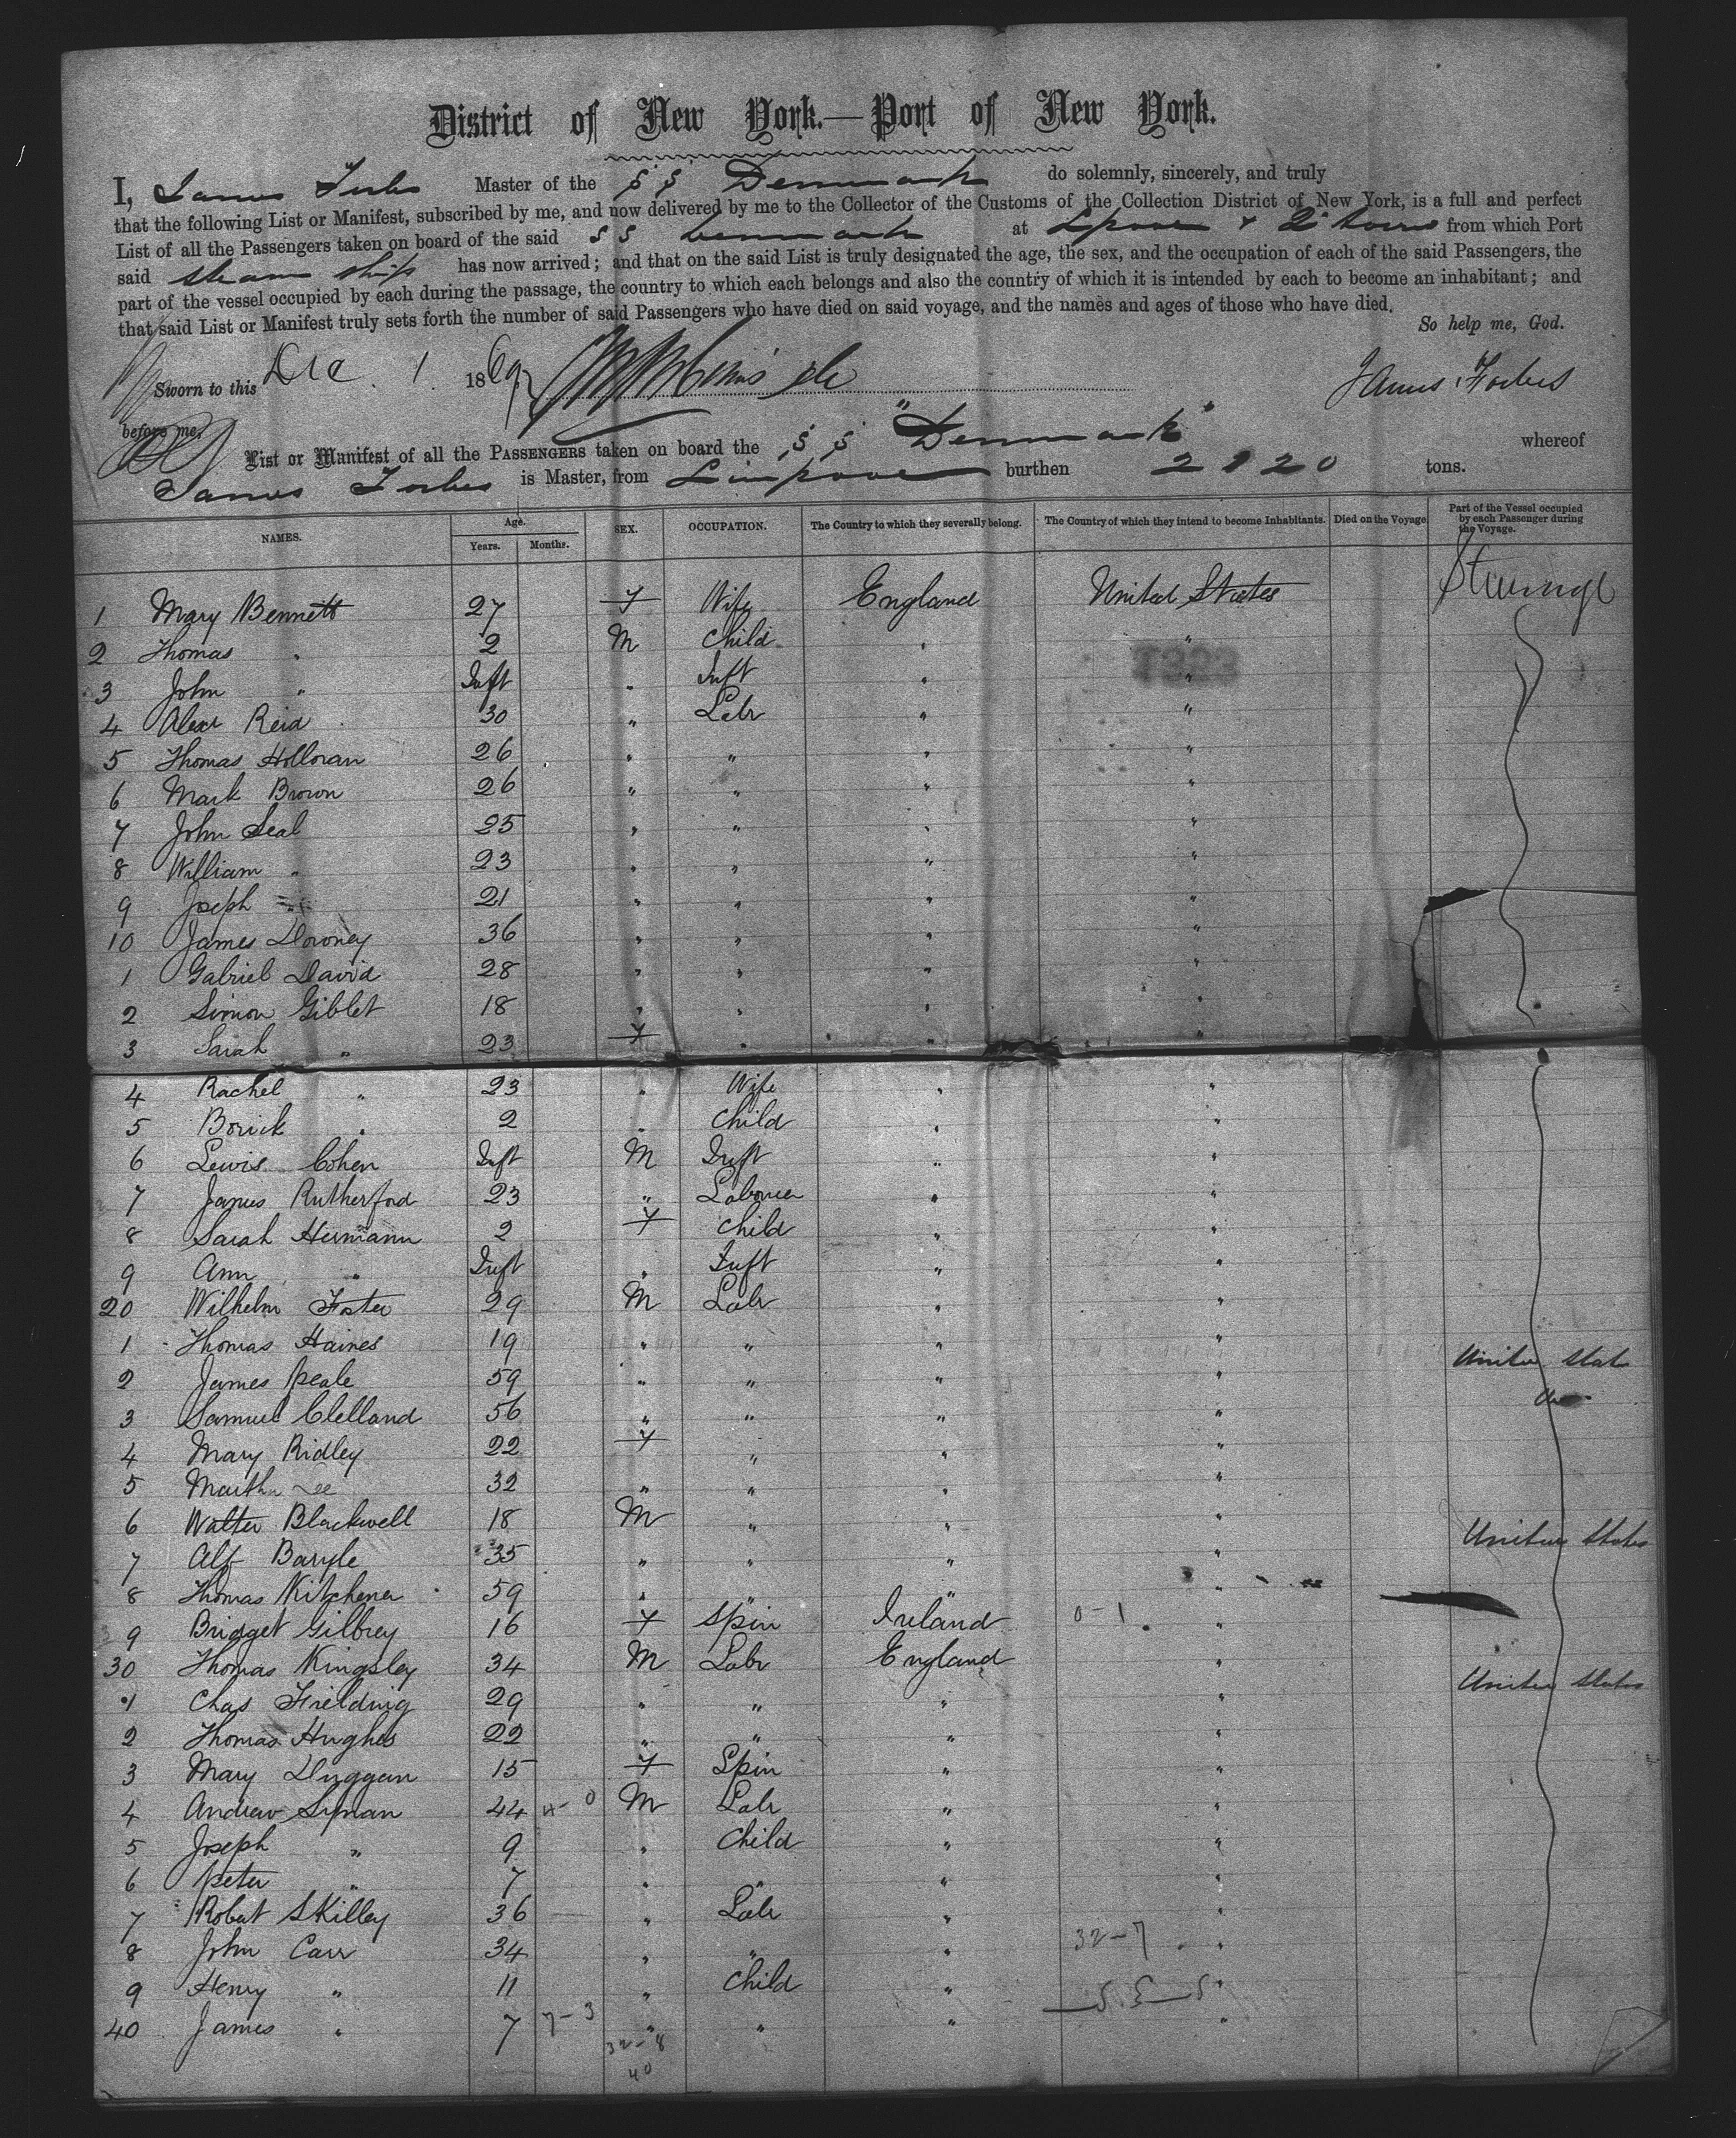 District of New York.—Port of New York.
I, James Forbes Master of the SS Denmark do solemnly, sincerely, and truly
that the following List or Manifest, subscribed by me, and now delivered by me to the Collector of the Customs of the Collection District of New York, is a full and perfect
List of all the Passengers taken on board of the said SS Denmark at Lpool & Qtown from which Port
said Steam Ship has now arrived; and that on the said List is truly designated the age, the sex, and the occupation of each of the said Passengers, the
part of the vessel occupied by each during the passage, the country to which each belongs and also the country of which it is intended by each to become an inhabitant; and
that said List or Manifest truly sets forth the number of said Passengers who have died on said voyage, and the names and ages of those who have died.
So help me, God.
Sworn to this Dec 1 1869
James Forbes
before me,
List or Manifest of all the PASSENGERS taken on board the SS "Denmark" whereof
James Forbes is Master, from Liverpool burthen tons.
NAMES. Age. Years. Months. SEX. OCCUPATION. The Country to which they severally belong. The Country of which they intend to become Inhabitants. Died on the Voyage. Part of the Vessel occupied by each Passenger during the Voyage.
1 Mary Bennett 27 F Wife England United States Steerage
2 Thomas " 2 M Child " "
3 John " Inft " Inft " "
4 Alexr Reid 30 " Labr " "
5 Thomas Holloran 26 " " " "
6 Mark Brown 26 " " " "
7 John Seal 25 " " " "
8 William " 23 " " " "
9 Joseph " 21 " " " "
10 James Downey 36 " " " "
1 Gabriel David 28 " " " "
2 Simon Giblet 18 " " " "
3 Sarah " 23 F " " "
4 Rachel " 23 " Wife " "
5 Borick " 2 " Child " "
6 Lewis Cohen Inft M Inft " "
7 James Rutherford 23 " Labourer " "
8 Sarah Hermann 2 F Child " "
9 Ann " Inft " Inft " "
20 Wilhelm Foster 29 M Labr " "
1 Thomas Haines 19 " " " " United Stat
2 James Peale 59 " " " "
3 Samuel Clelland 56 " " " "
4 Mary Ridley 22 F " " "
5 Martha Lee 32 " " " "
6 Walter Blackwell 18 M " " " United States
7 Alf Baryle 35 " " " "
8 Thomas Kitchener 59 " " " "
9 Bridget Gilbrey 16 F Spin Ireland 0-1 "
30 Thomas Kingsley 34 M Labr England "
1 Chas Frielding 29 " " " " United States
2 Thomas Hughes 22 " " " "
3 Mary Duggan 15 F Spin " "
4 Andrew Syman 44 M Labr " "
5 Joseph " 9 " Child " "
6 Peter " 7 " " " "
7 Robert Skilley 36 " Labr " "
8 John Carr 34 " " " 32-7 "
9 Henry " 11 " Child " "
40 James " 7 7-3 " " " "
32-8
40